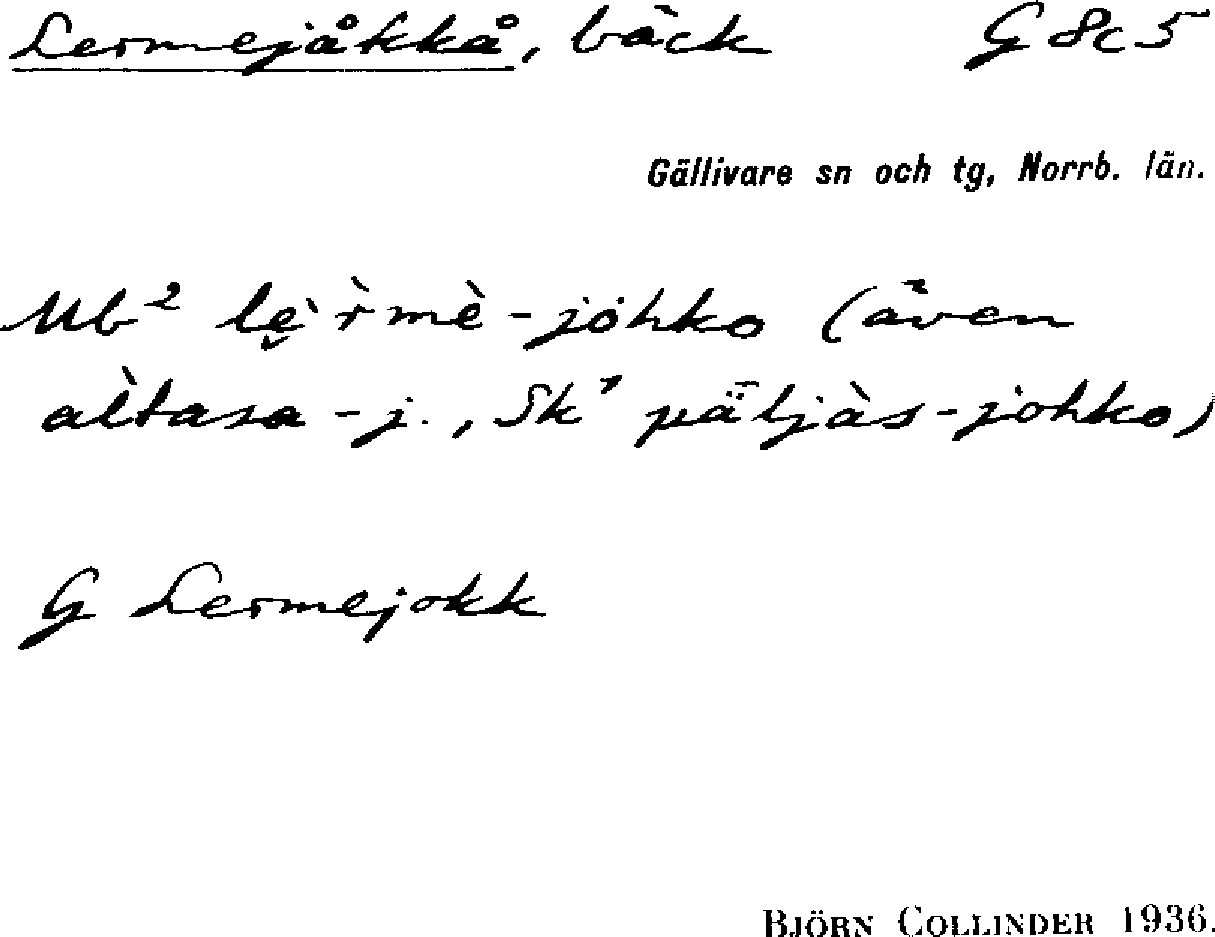 Lermejåkkå, bäck G 8c5
Gällivare sn och tg, Norrb. län.
Ub² lę̀ r̀mè-jöhko (även
al̀tasa-j., Sk' päljàs-johko)
G Lermejokk
BJÖRN COLLINDER 1936.